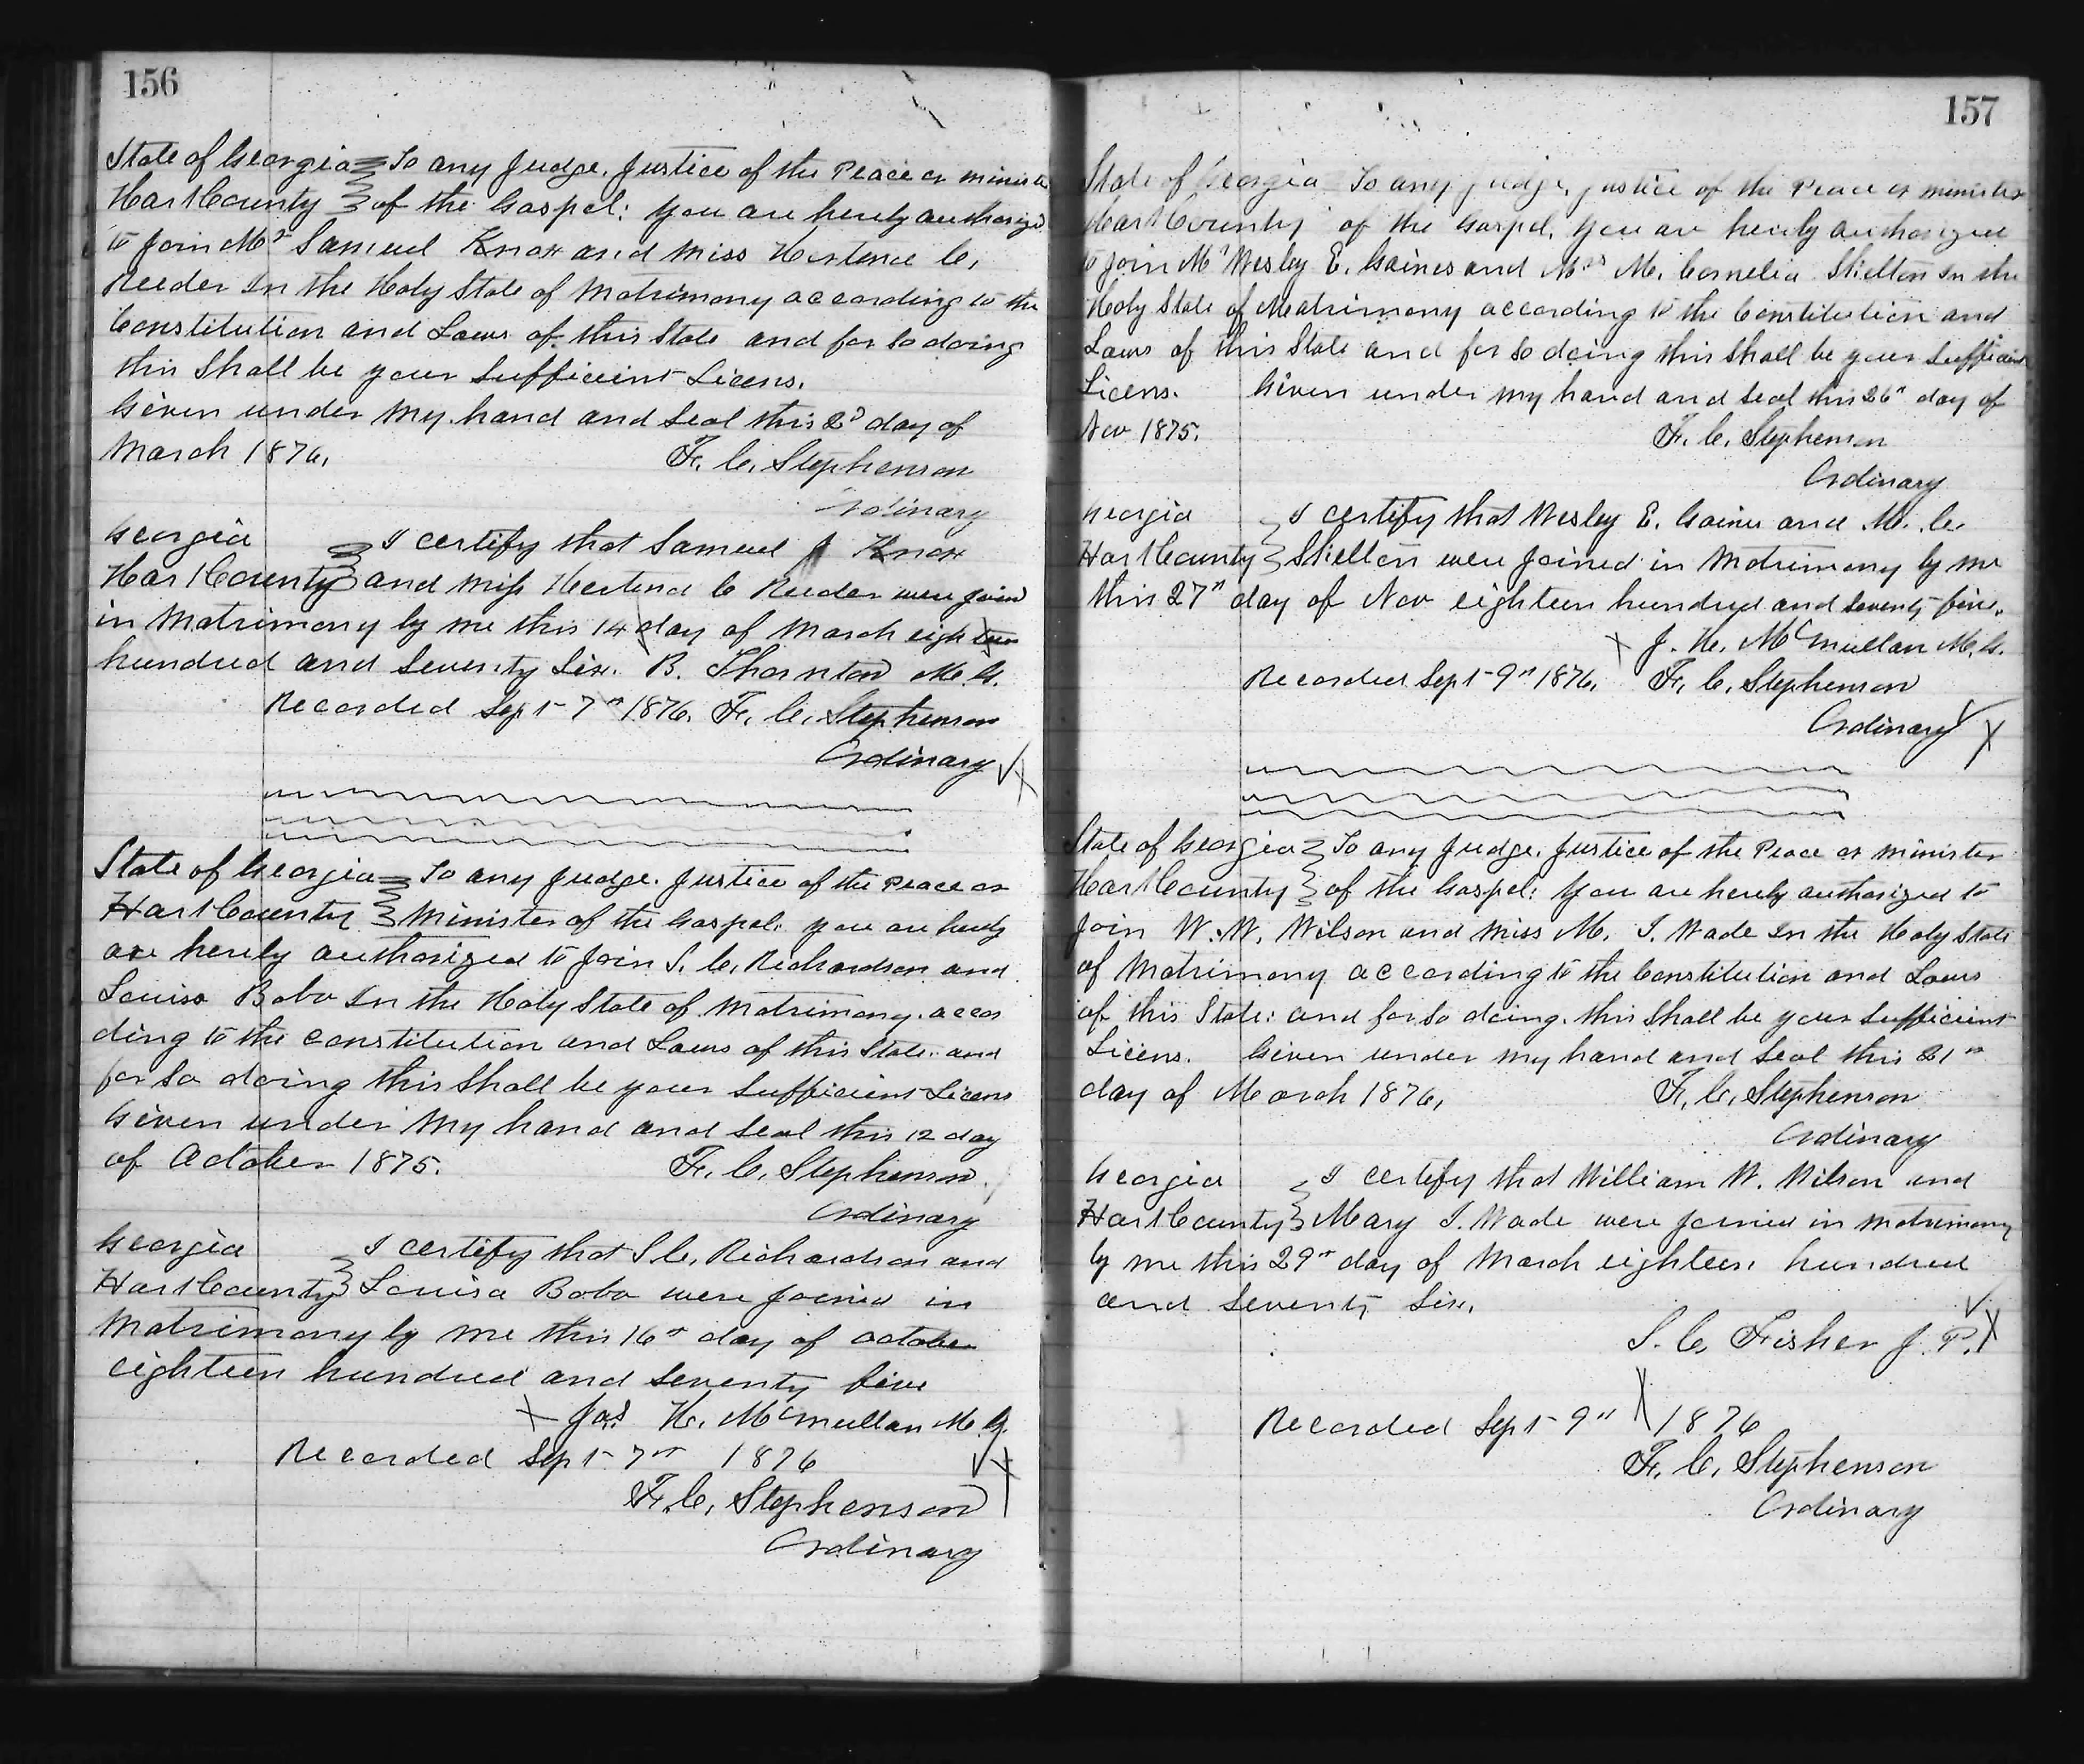 156
State of Georgia To any Judge, Justice of the Peace or minister
Hart County of the Gospel: you are hereby authorized
to Join Mr Samuel Knox and miss Hortence C.
Reeder In the Holy State of Matrimony according to the
Constitution and Laws of this State and for So doing
this Shall be your Sufficient Licens.
Given under my hand and Seal this 2d day of
March 1876, F. C. Stephenson
Ordinary
Georgia I certify that Samuel Knox
Hart County and miss C Reeder were Joind
in Matrimony by me this 14 day of March eighteen
hundred and Seventy Six. B. Thornton M.G.
Recorded Sept 7th 1876. F. C. Stephenson
Ordinary
State of Georgia To any Judge. Justice of the Peace or
Hart County Minister of the Gospel: you are herely
are hereby authorized to Join S. C. Richardson and
Louisa Bobo In the Holy State of Matrimony. accor
ding to the constitution and Laws of this State. and
for So doing this Shall be your Sufficient Licens
Given under my hand and Seal this 12 day
of October 1875. F. C. Stephenson.
Ordinary
Georgia I certify that S C. Richardson and
Hart County Louisa Bobo were Joined in
Matrimony by me this 16th day of October
eighteen hundred and Seventy five
Jas H. McMullan M.G.
Recorded Sept 7th 1876
F. C. Stephenson
Ordinary
157
State of Georgia To any Judge, Justice of the Peace or minister
Hart County of the Gospel, you are hereby authorized
to Join Mr Wesley E. Gaines and M. Cornelia Skelton In the
Holy State of Matrimony according to the Constitution and
Laws of this State and for So doing this Shall be your Sufficient
Licens. Given under my hand and Seal this 26th day of
Nov 1875. F. C. Stephenson
Ordinary
Georgia I certify that Wesley E. Gaines and M. C.
Hart County Skelton were Joined in Matrimony by me
this 27th day of Nov eighteen hundred and Seventy five.
J. H. McMullan M.G.
Recorded Sept 9th 1876. F. C. Stephenson
Ordinary
State of Georgia To any Judge. Justice of the Peace or minister
Hart County of the Gospel: you are hereby authorized to
Join W. W. Wilson and Miss M. J. Wade In the Holy State
of Matrimony according to the Constitution and Laws
of this State: and for So doing. this Shall be your Sufficient
Licens. Given under my hand and Seal this 21st
day of March 1876, F. C. Stephenson
Ordinary
Georgia I certify that William W. Wilson and
Hart County Mary J. Wade were Joined in Matrimony
by me this 29th day of March eighteen hundred
and Seventy Six.
S. C. Fisher J. P.
Recorded Sept 9th 1876
F. C. Stephenson
Ordinary